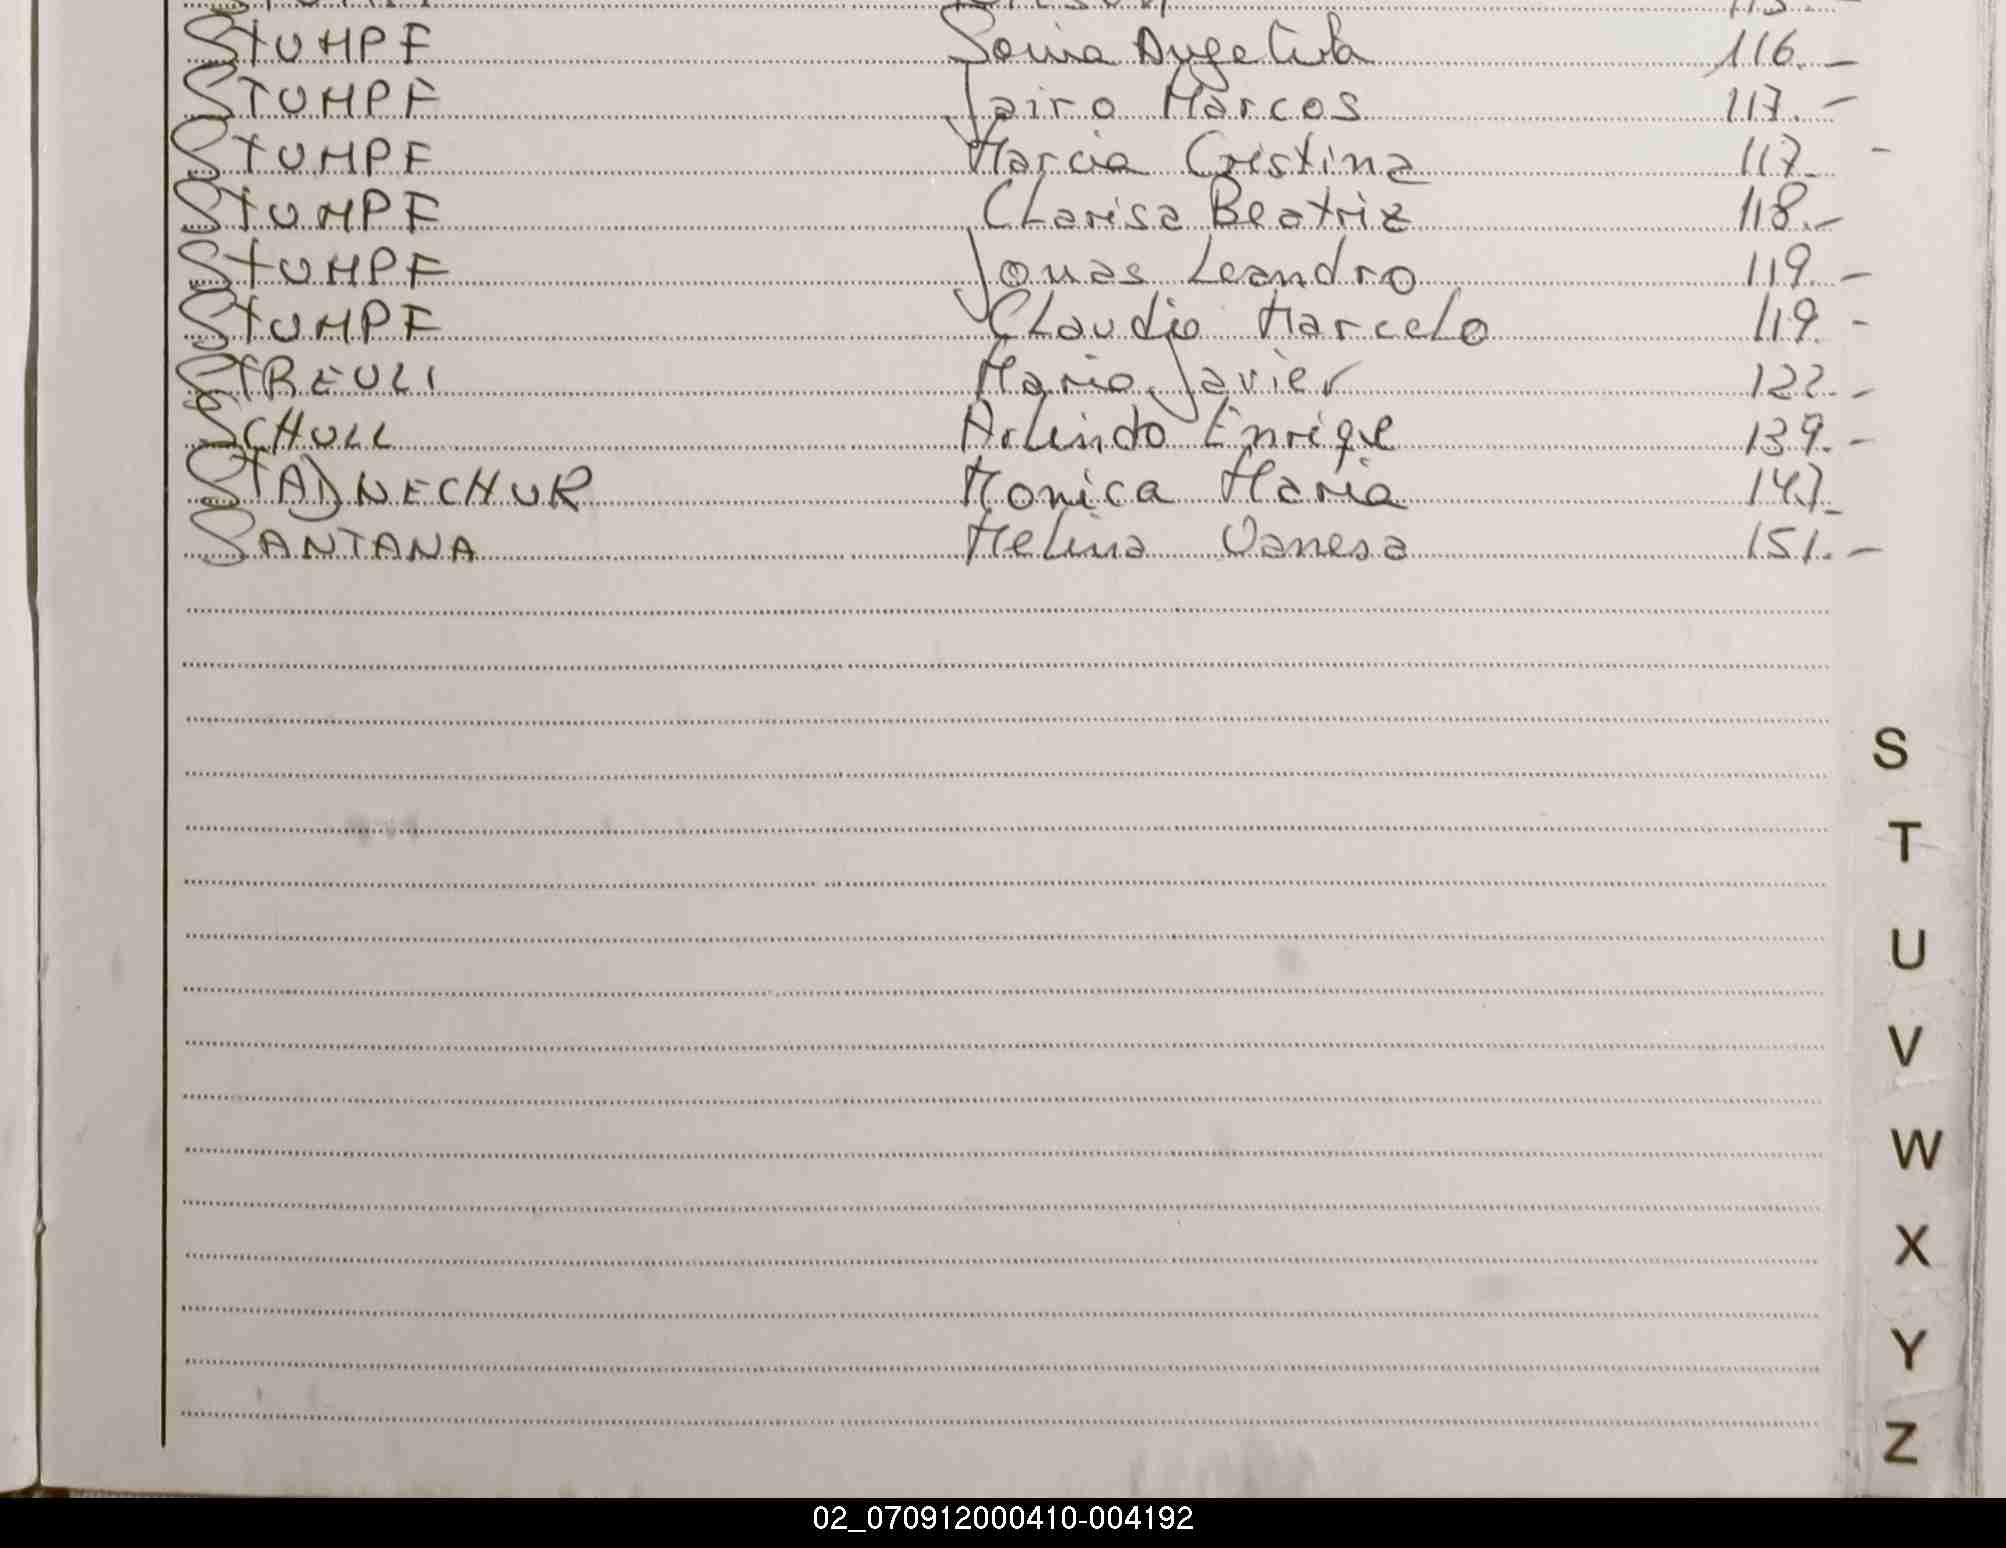 STUMPF Sonia Angelita 116.-
STUMPF Jairo Marcos 117.-
STUMPF Marcia Cristina 117.-
STUMPF Clarisa Beatriz 118.-
STUMPF Jonas Leandro 119.-
STUMPF Claudio Marcelo 119.-
STREULI Mario Javier 122.-
SCHULL Arlindo Enrique 139.-
STADNECHUR Monica Maria 147.-
SANTANA Melina Vanesa 151.-
S
T
U
V
W
X
Y
Z
02_070912000410-004192